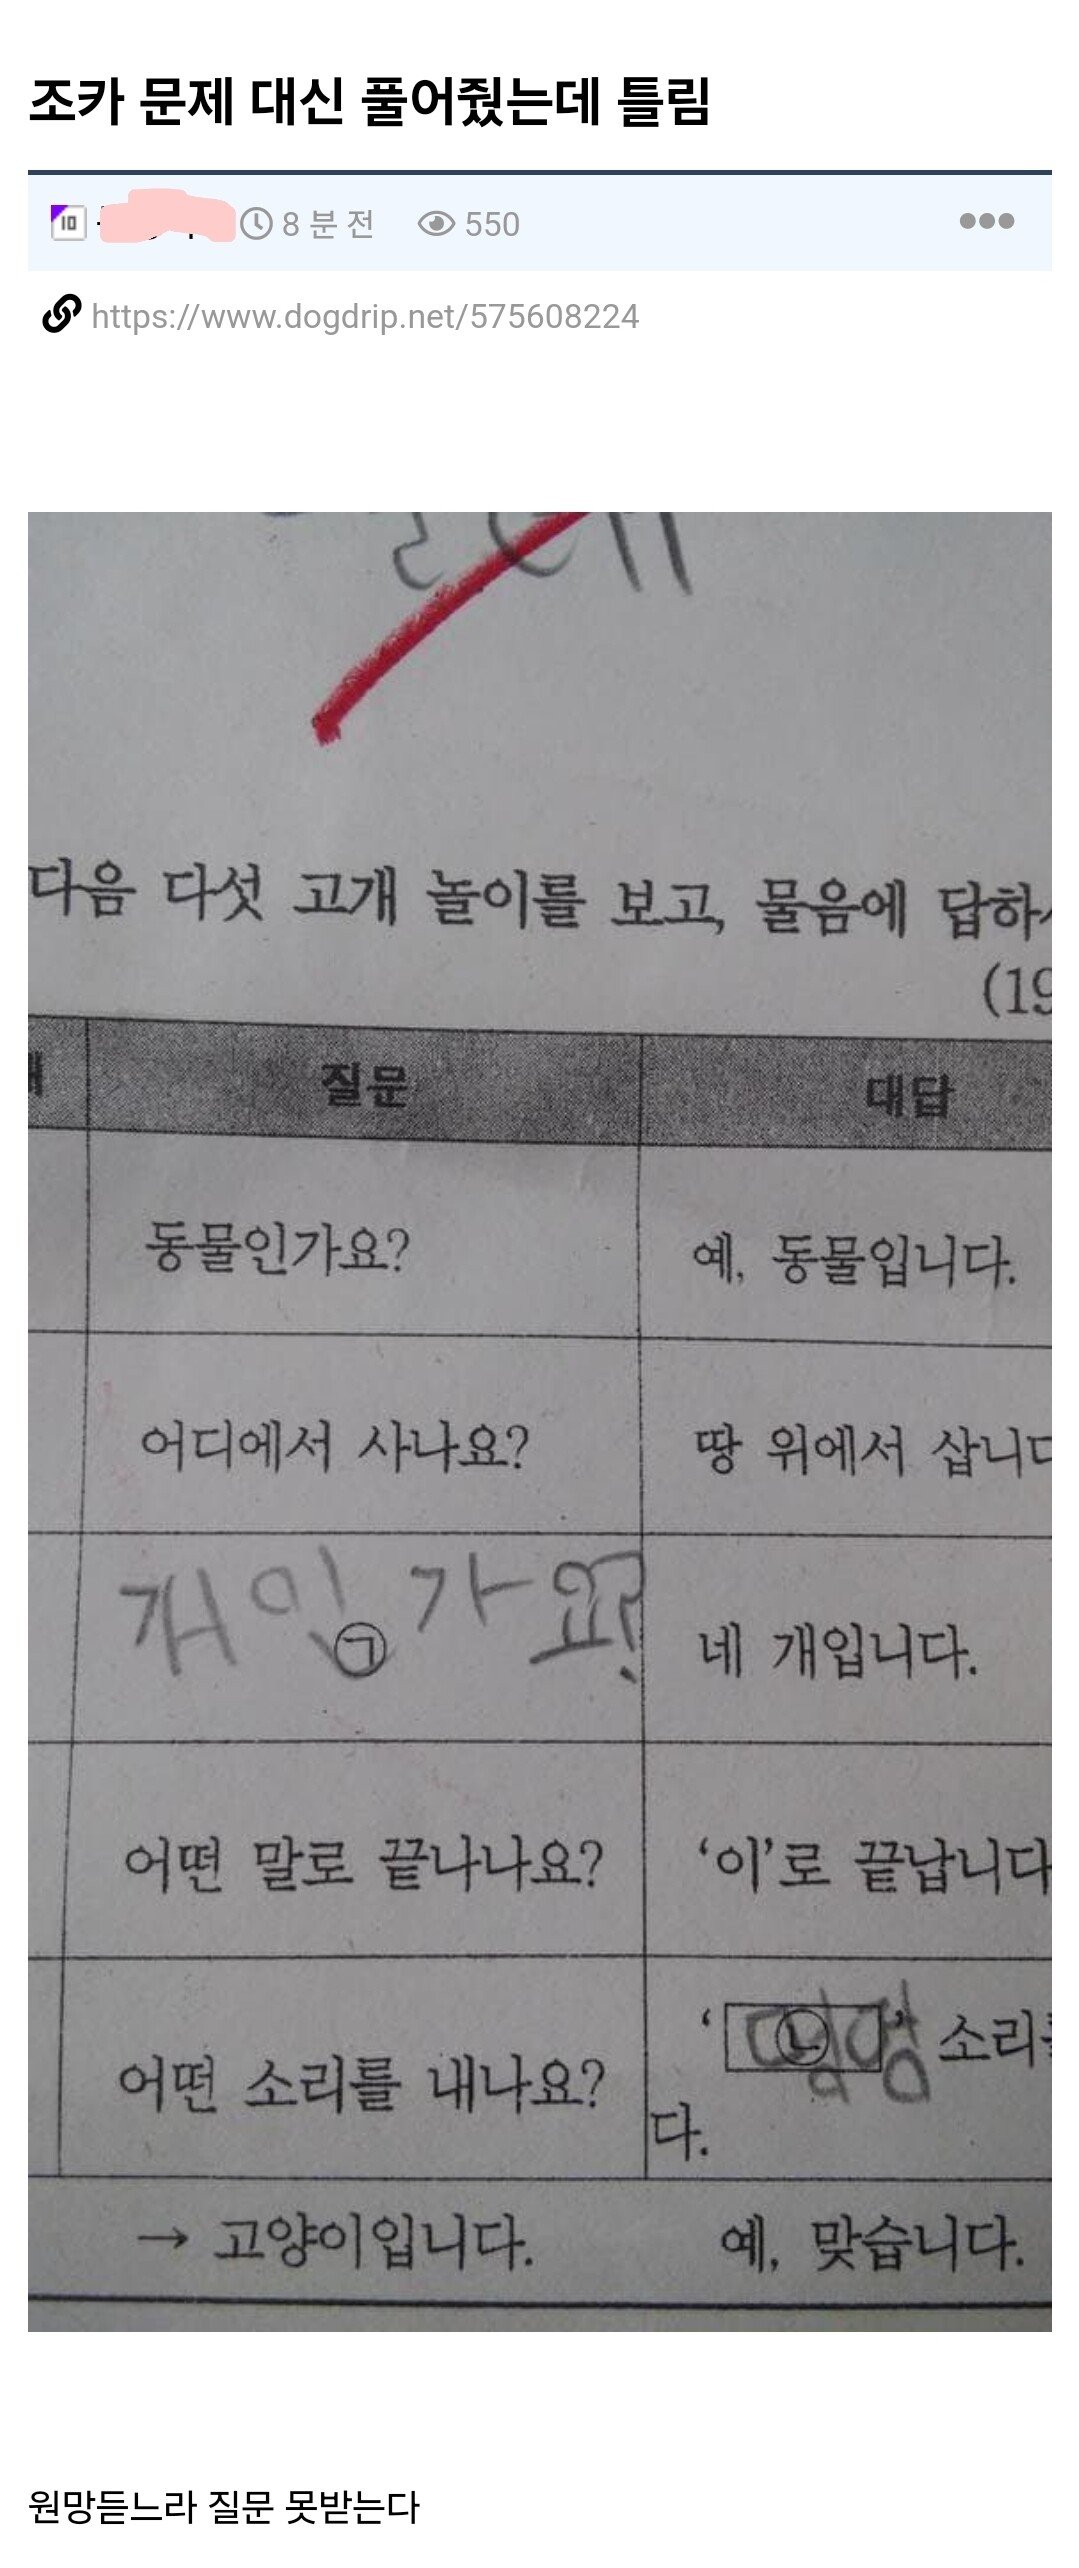 조카 문제 대신 풀어줬는데 틀림
8 분 전 550
https://www.dogdrip.net/575608224
다음 다섯 고개 놀이를 보고, 물음에 답하
(19
질문 대답
동물인가요? 예, 동물입니다.
어디에서 사나요? 땅 위에서 삽니다
개인가요? ㉠ 네 개입니다.
어떤 말로 끝나나요? ‘이’로 끝납니다
어떤 소리를 내나요? ‘멍멍 ㉡’ 소리를
다.
→ 고양이입니다. 예, 맞습니다.
원망듣느라 질문 못받는다